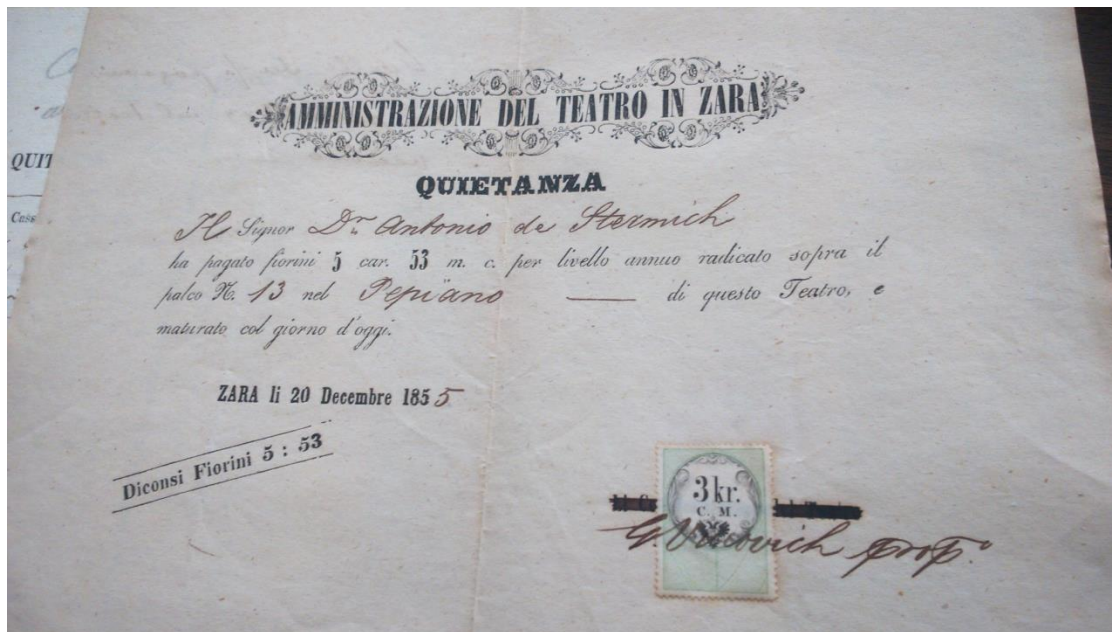 QUIT
Cass
AMMINISTRAZIONE DEL TEATRO IN ZARA
QUIETANZA
Il Signor Dr. Antonio de Stermich
ha pagato fiorini 5 car. 53 m. c. per livello annuo radicato sopra il
palco N. 13 nel Pepiano — di questo Teatro, e
maturato col giorno d'oggi.
ZARA li 20 Decembre 1855
Diconsi Fiorini 5 : 53
3 kr.
C. M.